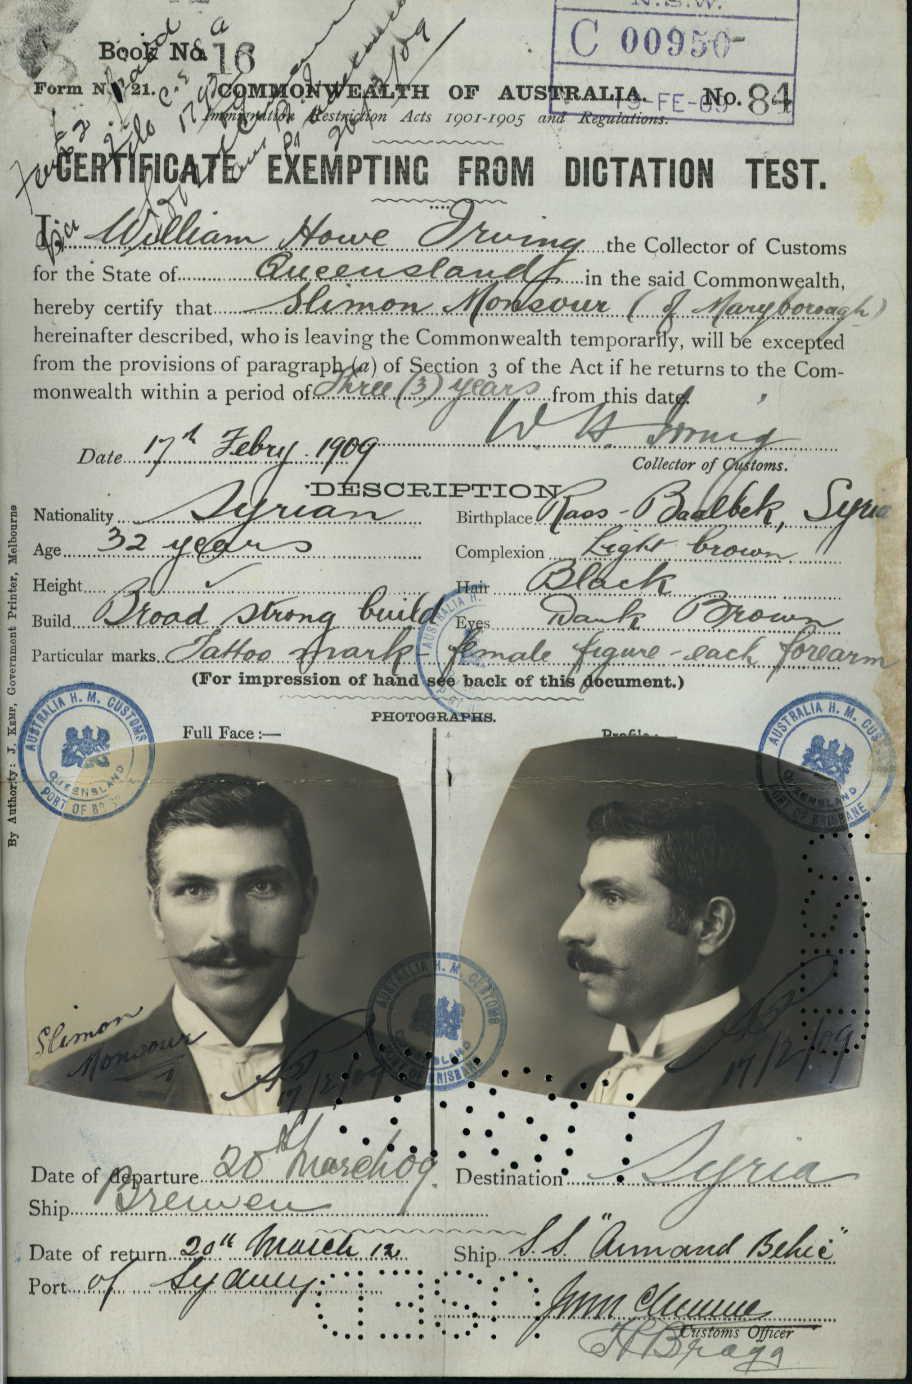 N.S.W.
C 00950
19-FE-09
Book No. 16
Form No. 21.
COMMONWEALTH OF AUSTRALIA. No. 84
Immigration Restriction Acts 1901-1905 and Regulations.
CERTIFICATE EXEMPTING FROM DICTATION TEST.
I, William Howe Irving the Collector of Customs
for the State of Queensland in the said Commonwealth,
hereby certify that Slimon Monsour (of Maryborough)
hereinafter described, who is leaving the Commonwealth temporarily, will be excepted
from the provisions of paragraph (a) of Section 3 of the Act if he returns to the Com-
monwealth within a period of Three (3) years from this date.
W. H. Irving
Date 17th Febry. 1909
Collector of Customs.
DESCRIPTION
Nationality Syrian Birthplace Raas-Baalbek, Syria
Age 32 years Complexion Light brown
Height Hair Black
Build Broad strong build Eyes Dark Brown
Particular marks Tattoo mark female figure - each forearm
(For impression of hand see back of this document.)
PHOTOGRAPHS.
Full Face :— Profile :—
AUSTRALIA H. M. CUSTOMS
QUEENSLAND
PORT OF BRISBANE
AUSTRALIA H. M. CUSTOMS
QUEENSLAND
PORT OF BRISBANE
AUSTRALIA H. M. CUSTOMS
QUEENSLAND
PORT OF BRISBANE
By Authority: J. KEMP, Government Printer, Melbourne
Slimon
Monsour
17/2/09
17/2/09
Date of departure 20th March 09. Destination Syria
Ship Bremen
Date of return 20th March 12 Ship S.S. "Armand Behic"
Port of Sydney.
Customs Officer
H Bragg